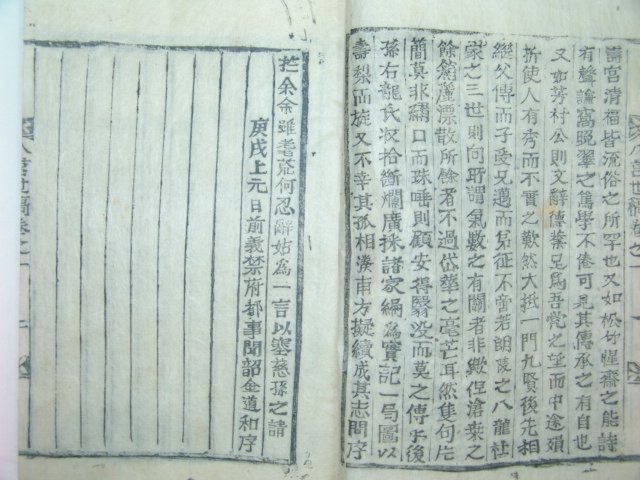 壽宮清福皆流俗之所罕也又如松竹惺齋之能詩
有聲論窩晩翠之篤學不倦可見其傳承之有自也
又如芳村公則文辭德業足爲吾黨之望而中途頃
折使人有秀而不實之歎然大抵一門九賢後先相
繼父傳而子受兄邁而弟征不啻若朗陵之八龍杜
家之三世則向所謂氣數之有關者非緻但滄桑之
餘蘭蘆漂散所餘者不過岱華之毫芒耳然隻句片
簡莫非繡口而珠唾則顧安得翳没而莫之傳乎後
孫右龍氏収拾斷爛廣採諸家編爲實記一局圖以
壽梨而旋又不幸其孤相湊甫方擬續成其志問序
於余余雖耄荒何忍辭姑爲一言以塞慈孫之請
庚戌上元日前義禁府都事聞韶金道和序
世稿卷之一